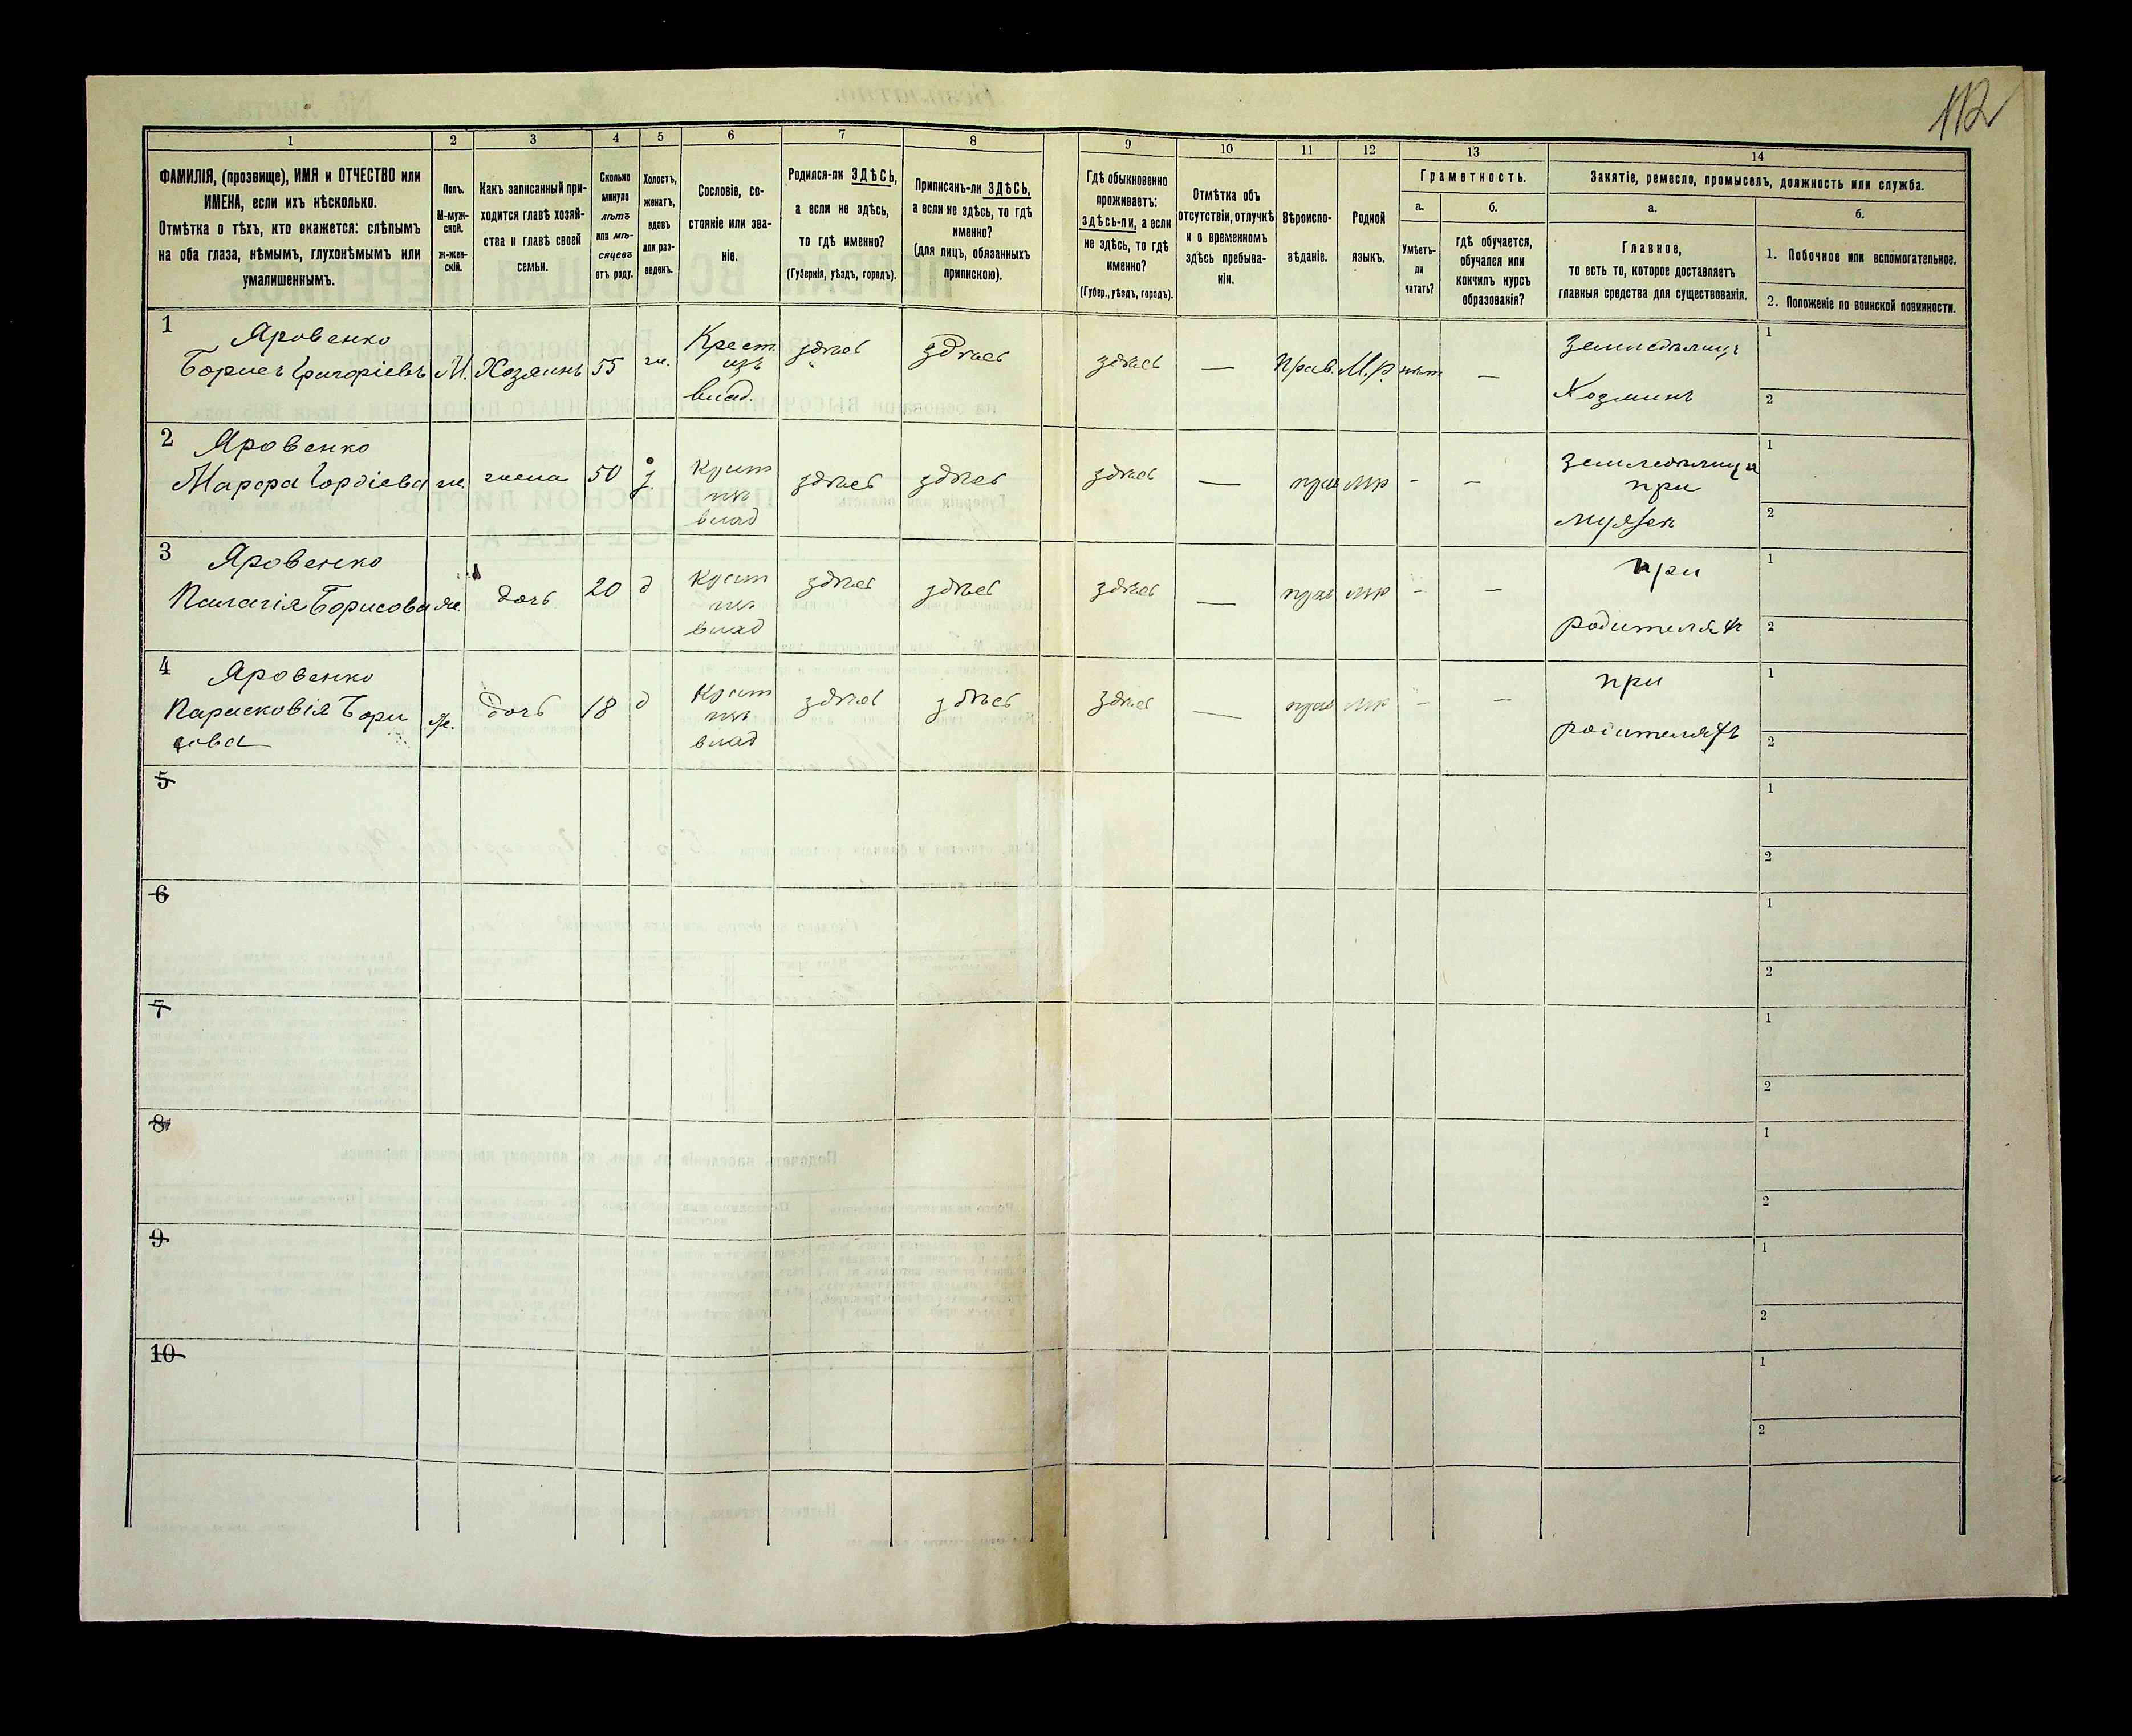 112
1 2 3 4 5 6 7 8 9 10 11 12 13 14
ФАМИЛІЯ, (прозвище), ИМЯ и ОТЧЕСТВО или
ИМЕНА, если ихъ нѣсколько.
Отмѣтка о тѣхъ, кто окажется: слѣпымъ
на оба глаза, нѣмымъ, глухонѣмымъ или
умалишеннымъ.
Полъ.
М-муж-
ской.
ж-жен-
скій.
Какъ записанный при-
ходится главѣ хозяй-
ства и главѣ своей
семьи.
Сколько
минуло
лѣтъ
или мѣ-
сяцевъ
отъ роду.
Холостъ,
женатъ,
вдовъ
или раз-
веденъ.
Сословіе, со-
стояніе или зва-
ніе.
Родился-ли ЗДѢСЬ,
а если не здѣсь,
то гдѣ именно?
(Губернія, уѣздъ, городъ).
Приписанъ-ли ЗДѢСЬ,
а если не здѣсь, то гдѣ
именно?
(для лицъ, обязанныхъ
припискою).
Гдѣ обыкновенно
проживаетъ:
здѣсь-ли, а если
не здѣсь, то гдѣ
именно?
(Губер., уѣздъ, городъ).
Отмѣтка объ
отсутствіи, отлучкѣ
и о временномъ
здѣсь пребыва-
ніи.
Вѣроиспо-
вѣданіе.
Родной
языкъ.
Грамотность.
а.
Умѣетъ-
ли
читать?
б.
гдѣ обучается,
обучался или
кончилъ курсъ
образованія?
Занятіе, ремесло, промыселъ, должность или служба.
а.
Главное,
то есть то, которое доставляетъ
главныя средства для существованія.
б.
1. Побочное или вспомогательное.
2. Положеніе по воинской повинности.
1 Яровенко
Борисъ Григоріевъ М. Хозяинъ 55 ж. Крест. изъ влад. здѣсь здѣсь здѣсь — Прав. М.р. нѣт — Земледѣлецъ
Хозяинъ
1
2
2 Яровенко
Марфа Гордіева ж. жена 50 з крест изъ влад здѣсь здѣсь здѣсь — прав мр - - Земледѣлица
при
мужѣ
1
2
3 Яровенко
Палагія Борисова ж. дочь 20 д крест изъ влад здѣсь здѣсь здѣсь — прав мр - - при
родителяхъ
1
2
4 Яровенко
Парасковія Бори
сова ж. дочь 18 д крест изъ влад здѣсь здѣсь здѣсь — прав мр - - при
родителяхъ
1
2
5
1
2
6
1
2
7
1
2
8
1
2
9
1
2
10
1
2